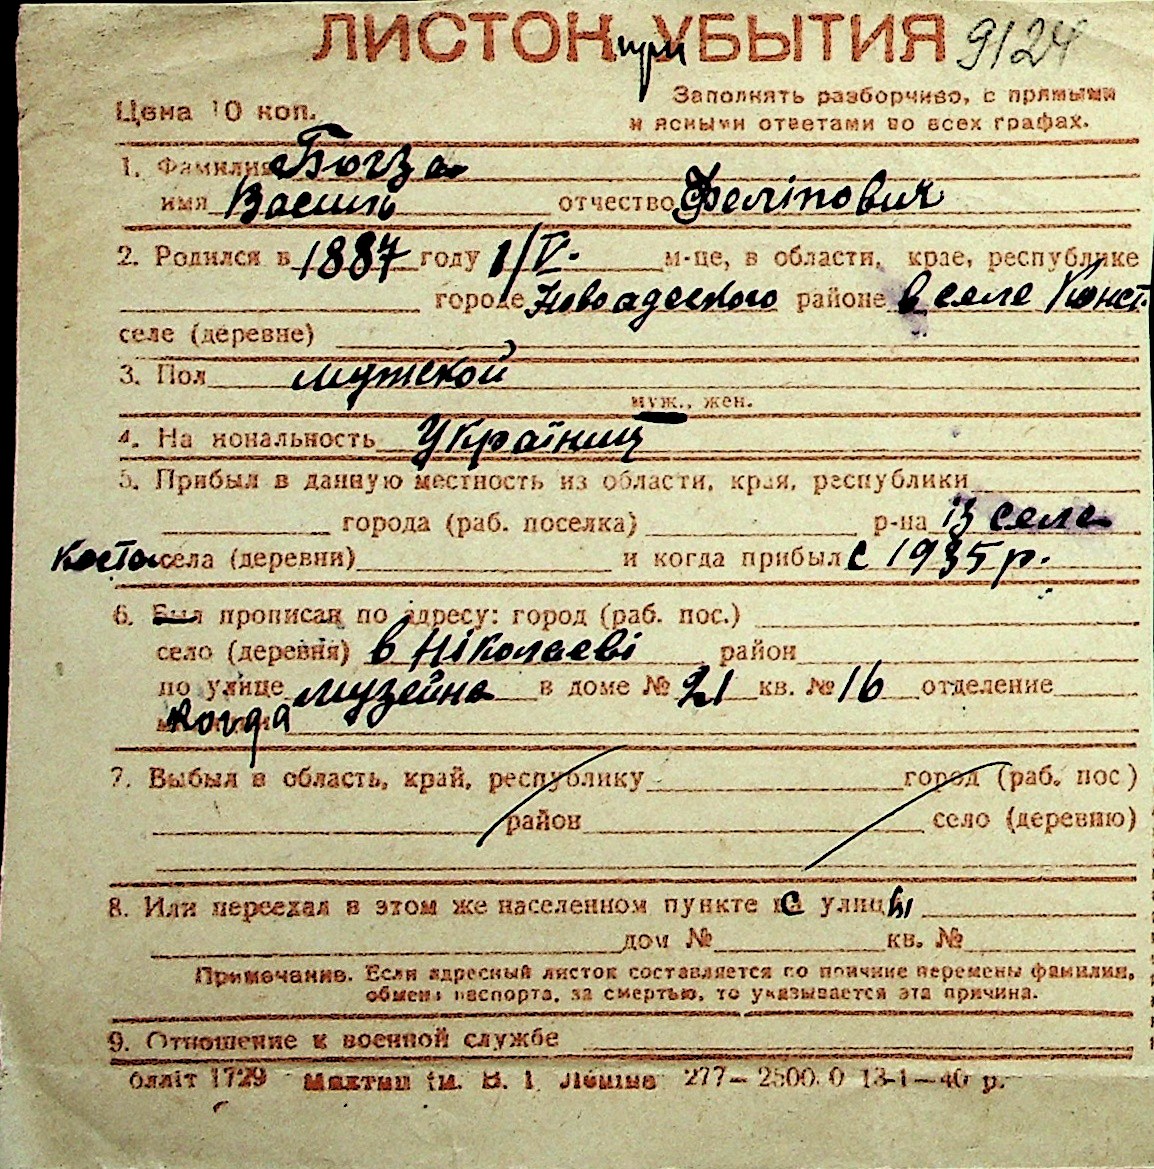 ЛИСТОК при УБЫТИЯ 9124
Цена 10 коп.
Заполнять разборчиво, с прямыми
и ясными ответами во всех графах.
1. Фамилия Богза
имя Василь отчество Феліпович
2. Родился в 1887 году 1/V. м-це, в области, крае, республике
городе Новоадеского районе в селе Конст.
селе (деревне)
3. Пол мужской
муж., жен.
4. Национальность Українец
5. Прибыл в данную местность из области, края, республики
города (раб. поселка) р-на із села
села (деревни) и когда прибыл с 1935 р.
6. Был прописан по адресу: город (раб. пос.)
село (деревня) в Ніколаеві район
по улице музейна в доме № 21 кв. № 16 отделение
когда
7. Выбыл в область, край, республику город (раб. пос)
район село (деревню)
8. Или переехал в этом же населенном пункте с улицы
дом № кв. №
Примечание. Если адресный листок составляется по причине перемены фамилии,
обмена паспорта, за смертью, то указывается эта причина.
9. Отношение к военной службе
блліт 1729 ім. В. І. Леніна 277—2500.0 13-1—40 р.